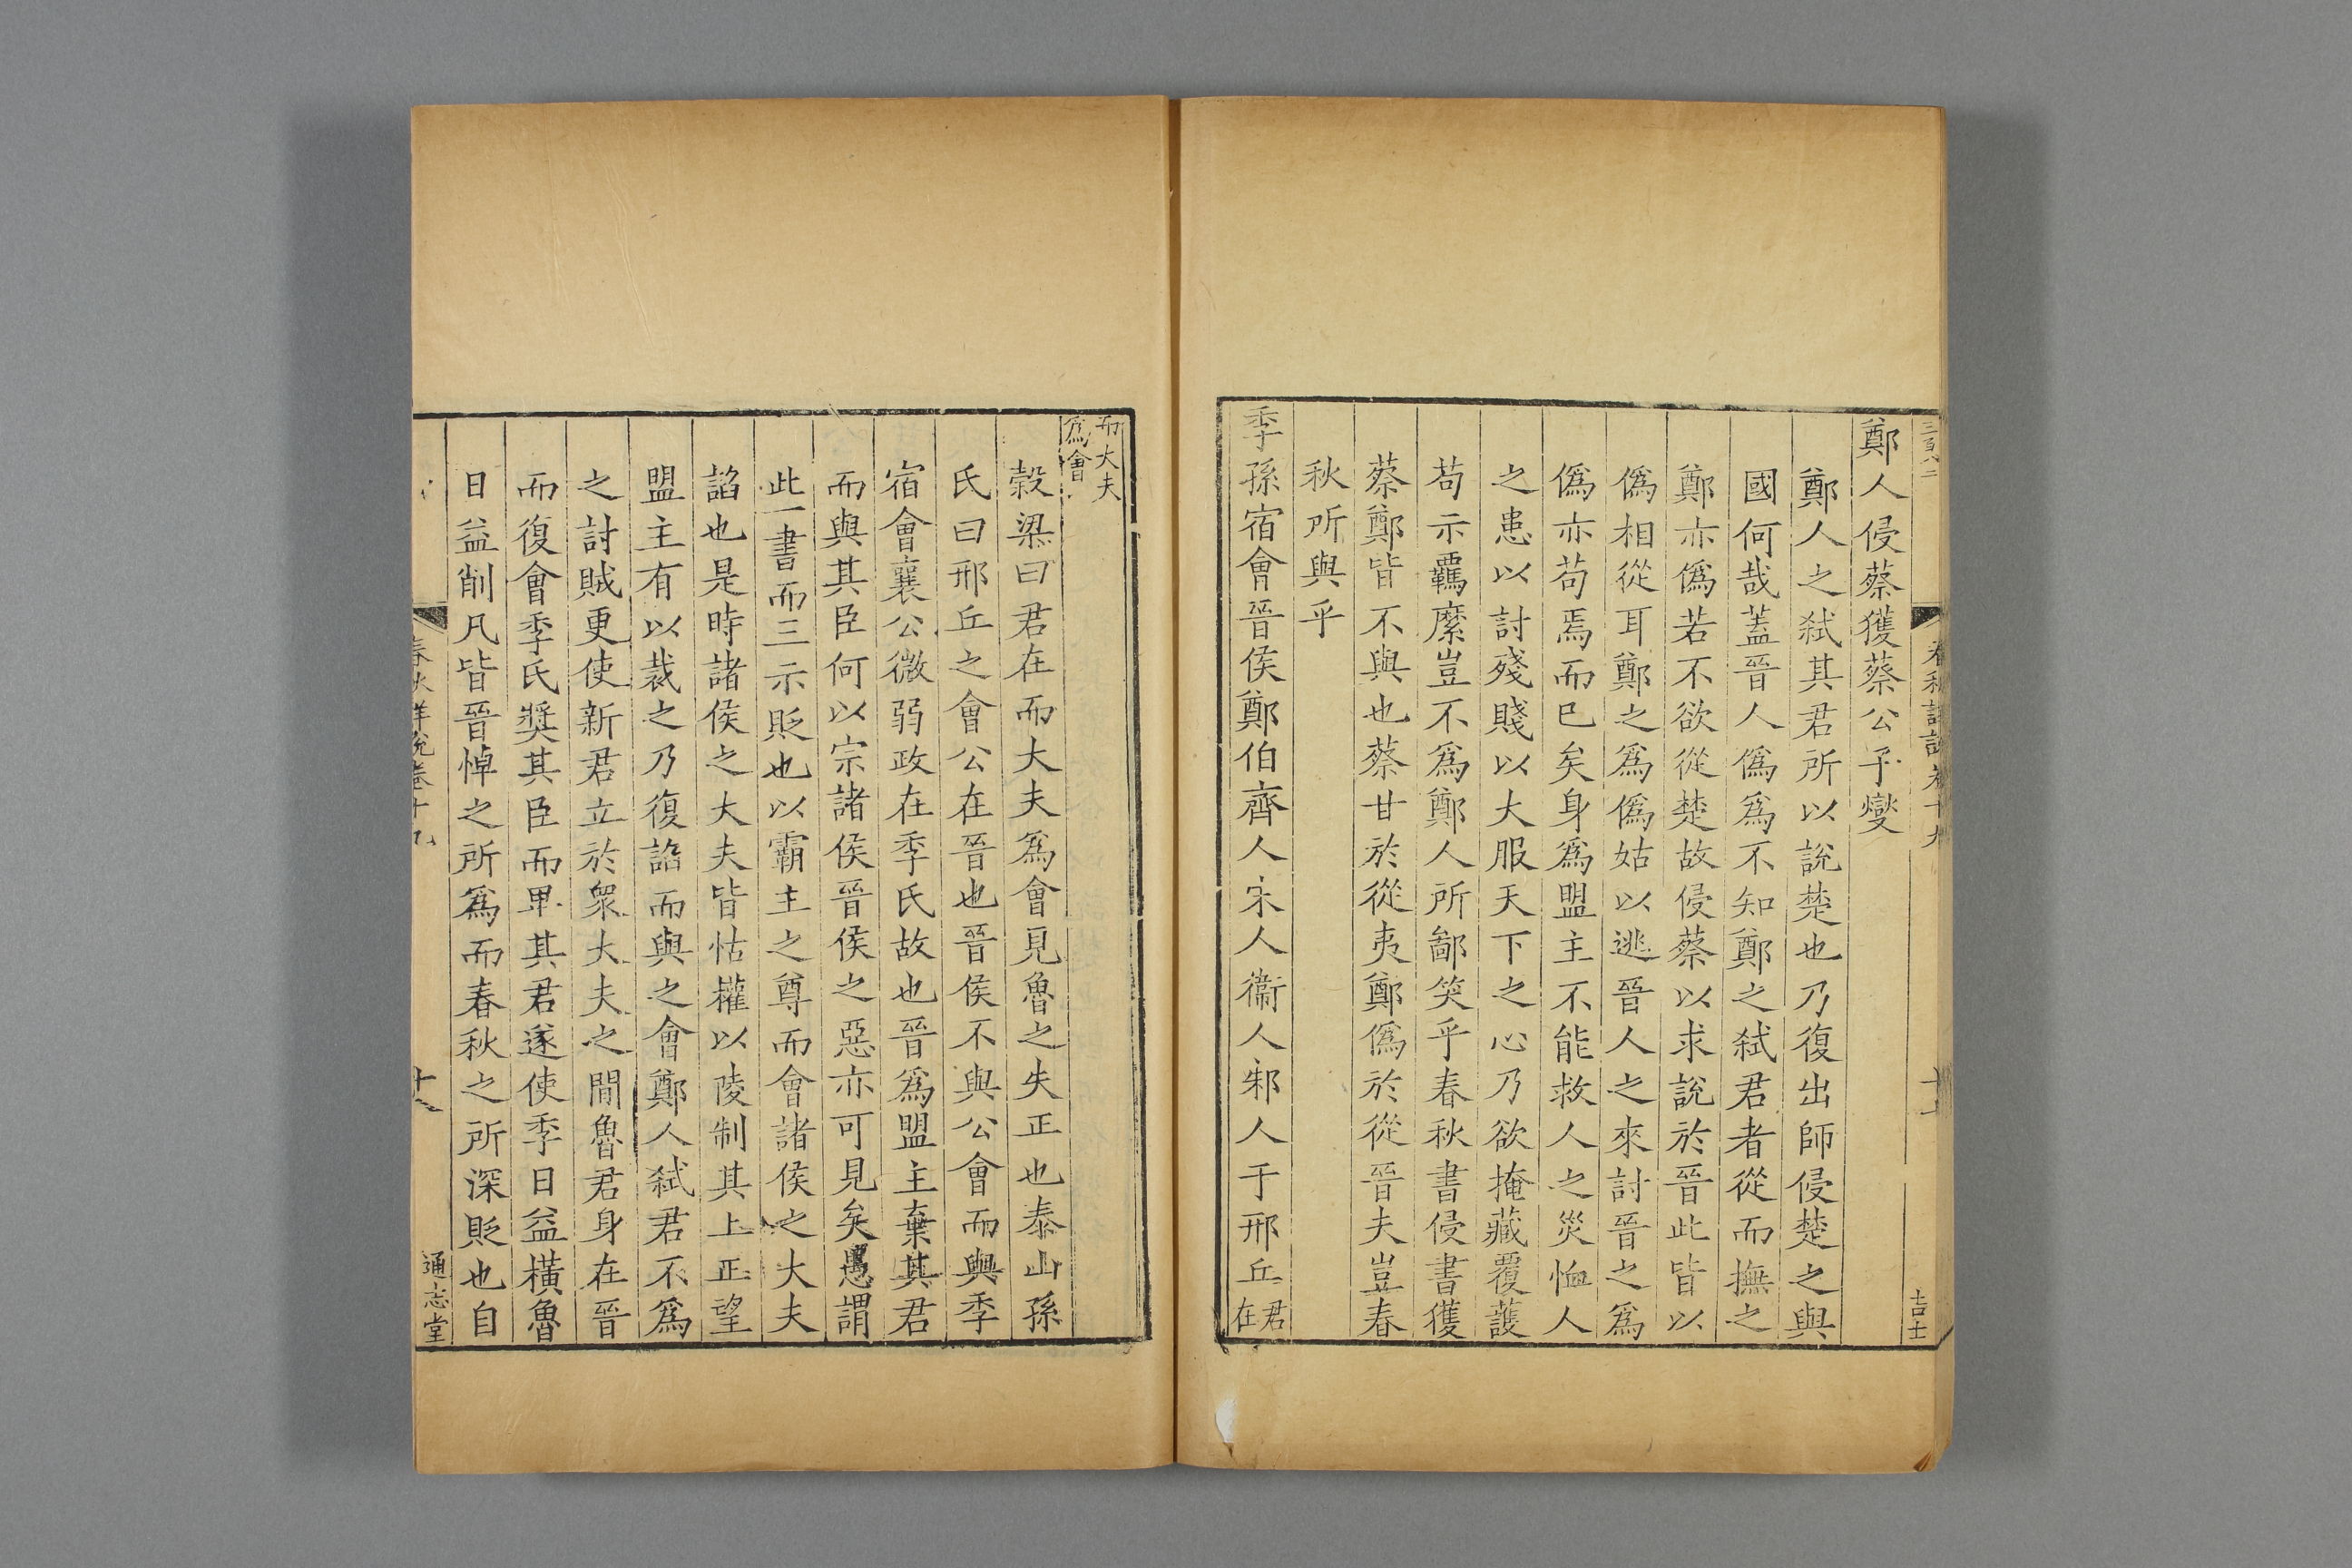 三百八二
春秋詳說卷十九
吉士
鄭人侵蔡獲蔡公子燮
鄭人之弑其君所以說楚也乃復出師侵楚之與
國何哉蓋晉人僞爲不知鄭之弑君者從而撫之
鄭亦僞若不欲從楚故侵蔡以求說於晉此皆以
僞相從耳鄭之爲僞姑以逃晉人之來討晉之爲
僞亦苟焉而已矣身爲盟主不能救人之災恤人
之患以討殘賤以大服天下之心乃欲掩藏覆護
苟示羈縻豈不爲鄭人所鄙笑乎春秋書侵書獲
蔡鄭皆不與也蔡甘於從夷鄭僞於從晉夫豈春
秋所與乎
季孫宿會晉侯鄭伯齊人宋人衞人邾人于邢丘君
在
而大夫
爲會
穀梁曰君在而大夫爲會見魯之失正也泰山孫
氏曰邢丘之會公在晉也晉侯不與公會而與季
宿會襄公微弱政在季氏故也晉爲盟主棄其君
而與其臣何以宗諸侯晉侯之惡亦可見矣愚謂
此一書而三示貶也以霸主之尊而會諸侯之大夫
諂也是時諸侯之大夫皆怙權以陵制其上正望
盟主有以裁之乃復諂而與之會鄭人弑君不爲
之討賊更使新君立於衆大夫之閒魯君身在晉
而復會季氏奬其臣而卑其君遂使季日益橫魯
日益削凡皆晉悼之所爲而春秋之所深貶也自
春秋詳說卷十九
十八
通志堂